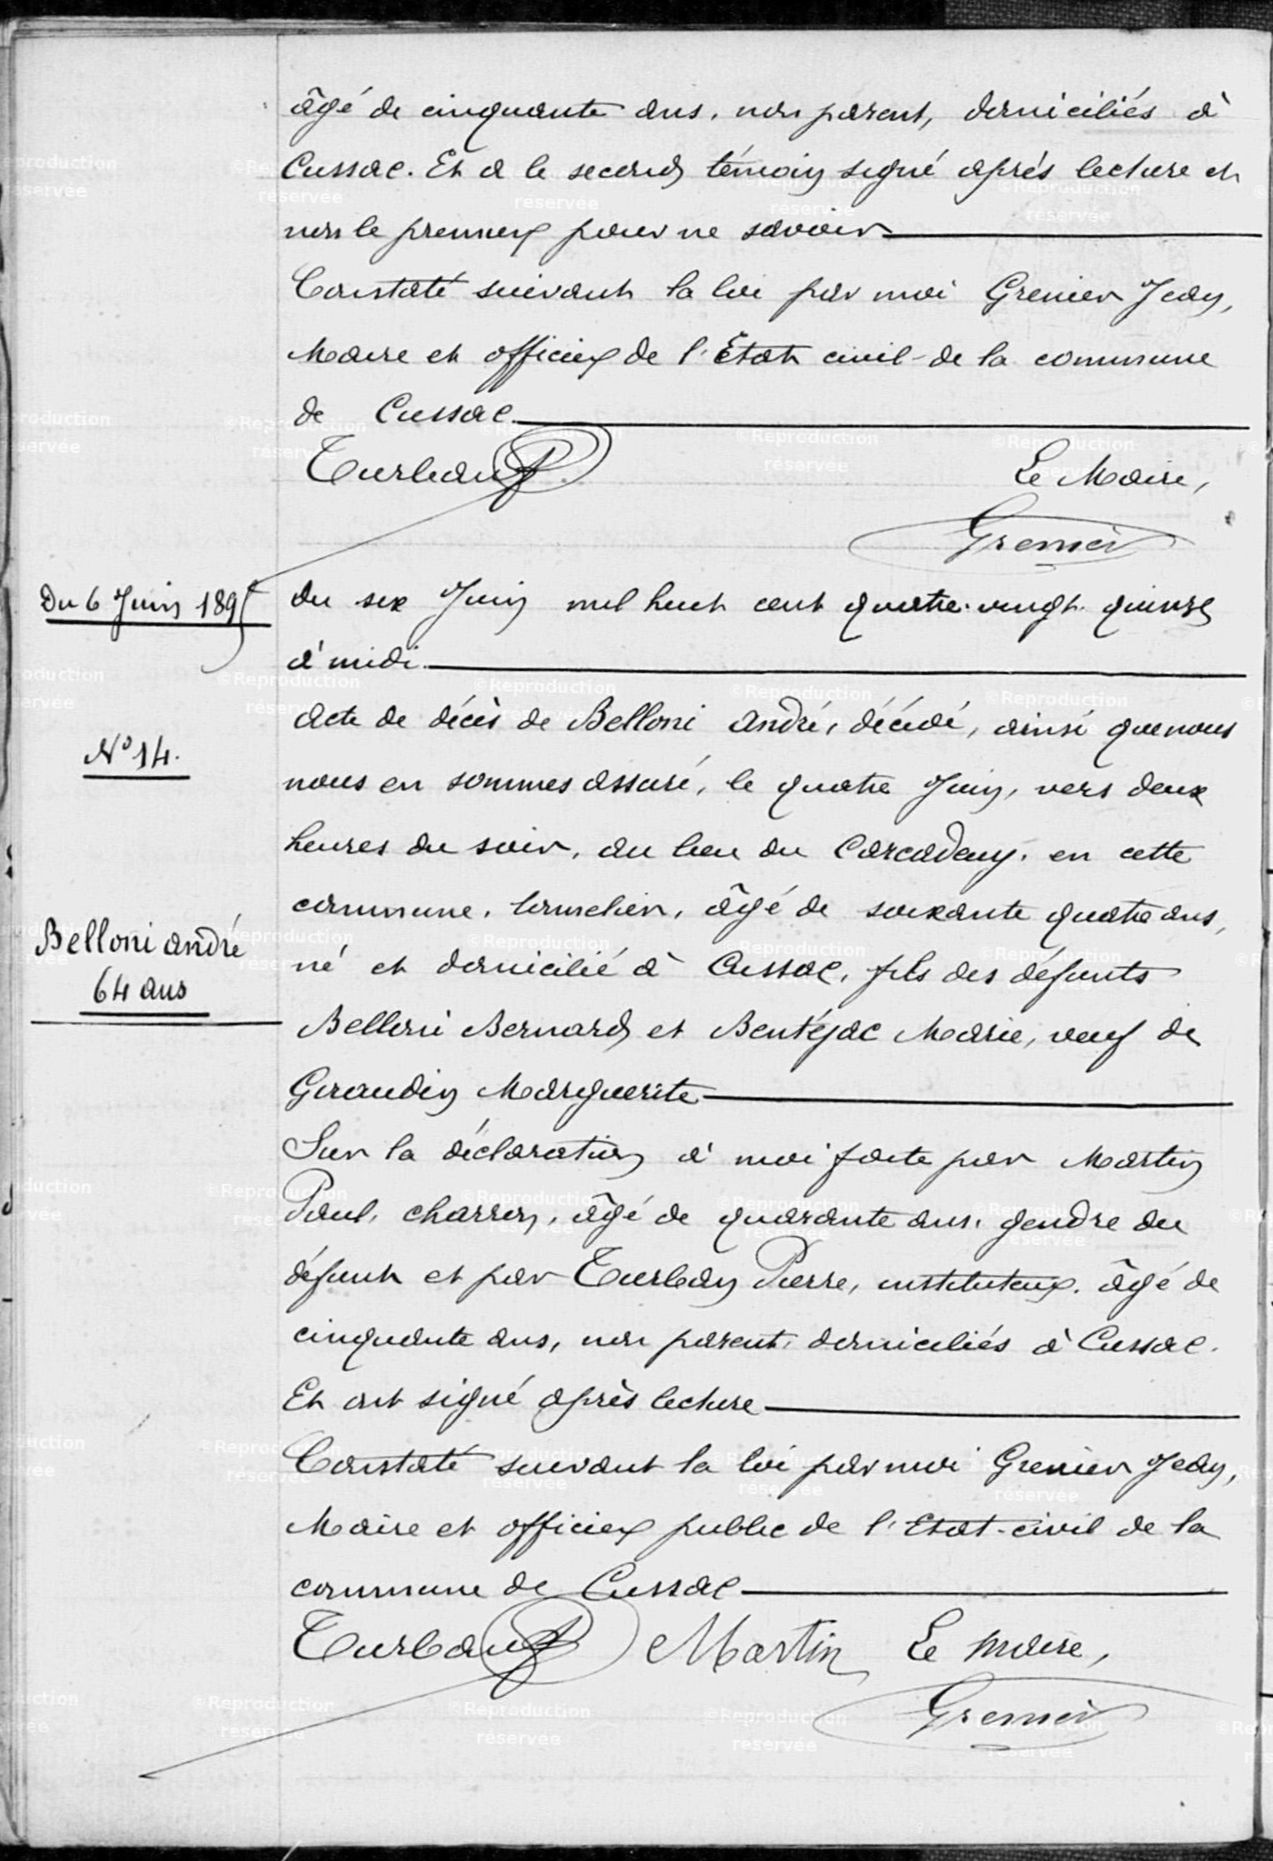 âgé de cinquante ans, non parent, domiciliés à
Cussac. Et a le second témoin signé après lecture et
non le premier pour ne savoir
Constaté suivant la loi par moi Grenier Jean,
Maire et officier de l'Etat civil de la commune
de Cussac
Turban
Le Maire,
Grenier
Du 6 Juin 1895
Du six Juin mil huit cent quatre-vingt-quinze
à midi
N° 14.
Acte de décès de Belloni André, décédé, ainsi que nous
nous en sommes assuré, le quatre Juin, vers deux
heures du soir, au lieu du en cette
commune, tonnelier, âgé de soixante quatre ans,
Belloni André
64 ans
né et domicilié à Cussac, fils des défunts
Belloni Bernard et Bentéjac Marie, veuf de
Giraudin Marguerite
Sur la déclaration à moi faite par Martin
Paul, charron, âgé de quarante ans, gendre du
défunt et par Turban Pierre, instituteur, âgé de
cinquante ans, non parent, domiciliés à Cussac.
Et ont signé après lecture
Constaté suivant la loi par moi Grenier Jean,
Maire et officier public de l'Etat-civil de la
commune de Cussac
Turban Martin Le Maire,
Grenier
©Reproduction
réservée